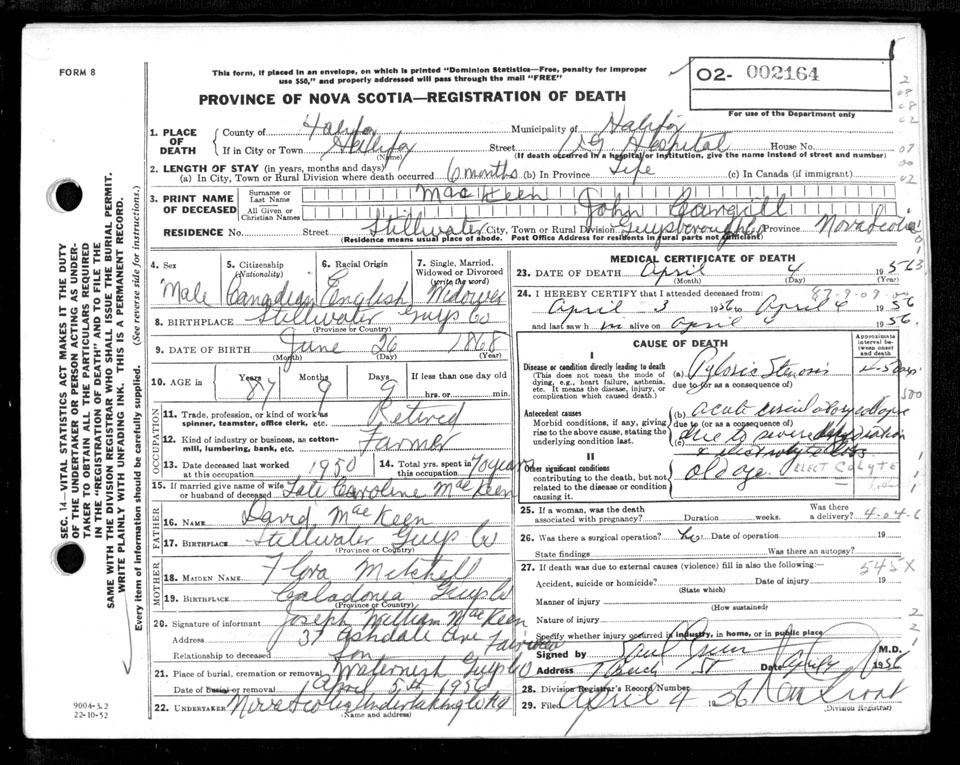 FORM 8
This form, if placed in an envelope, on which is printed "Dominion Statistics—Free, penalty for improper use $50," and properly addressed will pass through the mail "FREE"
02- 002164
For use of the Department only
PROVINCE OF NOVA SCOTIA—REGISTRATION OF DEATH
1. PLACE OF DEATH
County of Halifax Municipality of Halifax
If in City or Town Halifax Street V.G. Hospital House No.
(Name) (If death occurred in a hospital or institution, give the name instead of street and number)
2. LENGTH OF STAY (in years, months and days)
(a) In City, Town or Rural Division where death occurred 6 months (b) In Province Life (c) In Canada (if immigrant)
3. PRINT NAME OF DECEASED
Surname or Last Name MacKeen
All Given or Christian Names John Camgill
RESIDENCE No. Street Stillwater City, Town or Rural Division Guysborough Co Province Nova Scotia
(Residence means usual place of abode. Post Office Address for residents in rural parts not sufficient)
4. Sex Male
5. Citizenship (Nationality) Canadian
6. Racial Origin English
7. Single, Married, Widowed or Divorced (write the word) Widower
8. BIRTHPLACE Stillwater Guys Co
(Province or Country)
9. DATE OF BIRTH June 26 1868
(Month) (Day) (Year)
10. AGE in Years 87 Months 9 Days 9 If less than one day old
hrs. or min.
OCCUPATION
11. Trade, profession, or kind of work as spinner, teamster, office clerk, etc. Retired
12. Kind of industry or business, as cotton-mill, lumbering, bank, etc. Farmer
13. Date deceased last worked at this occupation 1950
14. Total yrs. spent in this occupation 70 years
15. If married give name of wife or husband of deceased Late Caroline MacKeen
FATHER
16. NAME David MacKeen
17. BIRTHPLACE Stillwater Guys Co
(Province or Country)
MOTHER
18. MAIDEN NAME Flora Mitchell
19. BIRTHPLACE Caladonia Guys Co
(Province or Country)
20. Signature of informant Joseph William MacKeen
Address 37 Ashdale Ave Fairview
Relationship to deceased Son
21. Place of burial, cremation or removal Waternish Guys Co
Date of burial or removal April 5th 1956
22. UNDERTAKER Nova Scotia Undertaking
(Name and address)
MEDICAL CERTIFICATE OF DEATH
23. DATE OF DEATH April 4 1956
(Month) (Day)
24. I HEREBY CERTIFY that I attended deceased from:
April 3 1956 to April 4 1956
and last saw h im alive on April 4 1956.
CAUSE OF DEATH
Approximate interval between onset and death
I
Disease or condition directly leading to death
(This does not mean the mode of dying, e.g., heart failure, asthenia, etc. It means the disease, injury, or complication which caused death.)
(a) Pyloric Stenosis 4-5 days
due to (or as a consequence of)
Antecedent causes
Morbid conditions, if any, giving rise to the above cause, stating the underlying condition last.
(b) acute circulatory collapse
due to (or as a consequence of)
due to severe dehydration
II
Other significant conditions contributing to the death, but not related to the disease or condition causing it.
old age ELECTROLYTE
25. If a woman, was the death associated with pregnancy? Duration weeks. Was there a delivery?
4-04-6
26. Was there a surgical operation? Date of operation 19
State findings Was there an autopsy?
27. If death was due to external causes (violence) fill in also the following:
545X
Accident, suicide or homicide? Date of injury 19
(State which)
Manner of injury
(How sustained)
Nature of injury
Specify whether injury occurred in industry, in home, or in public place
Signed by M.D.
Address Date April 4 1956
28. Division Registrar's Record Number
29. Filed April 4 1956
(Division Registrar)
SEC. 14—VITAL STATISTICS ACT MAKES IT THE DUTY OF THE UNDERTAKER OR PERSON ACTING AS UNDERTAKER TO OBTAIN ALL THE PARTICULARS REQUIRED IN THE "REGISTRATION OF DEATH" AND TO FILE THE SAME WITH THE DIVISION REGISTRAR WHO SHALL ISSUE THE BURIAL PERMIT.
WRITE PLAINLY WITH UNFADING INK. THIS IS A PERMANENT RECORD.
Every item of information should be carefully supplied. (See reverse side for instructions.)
9004-3.2
22-10-52